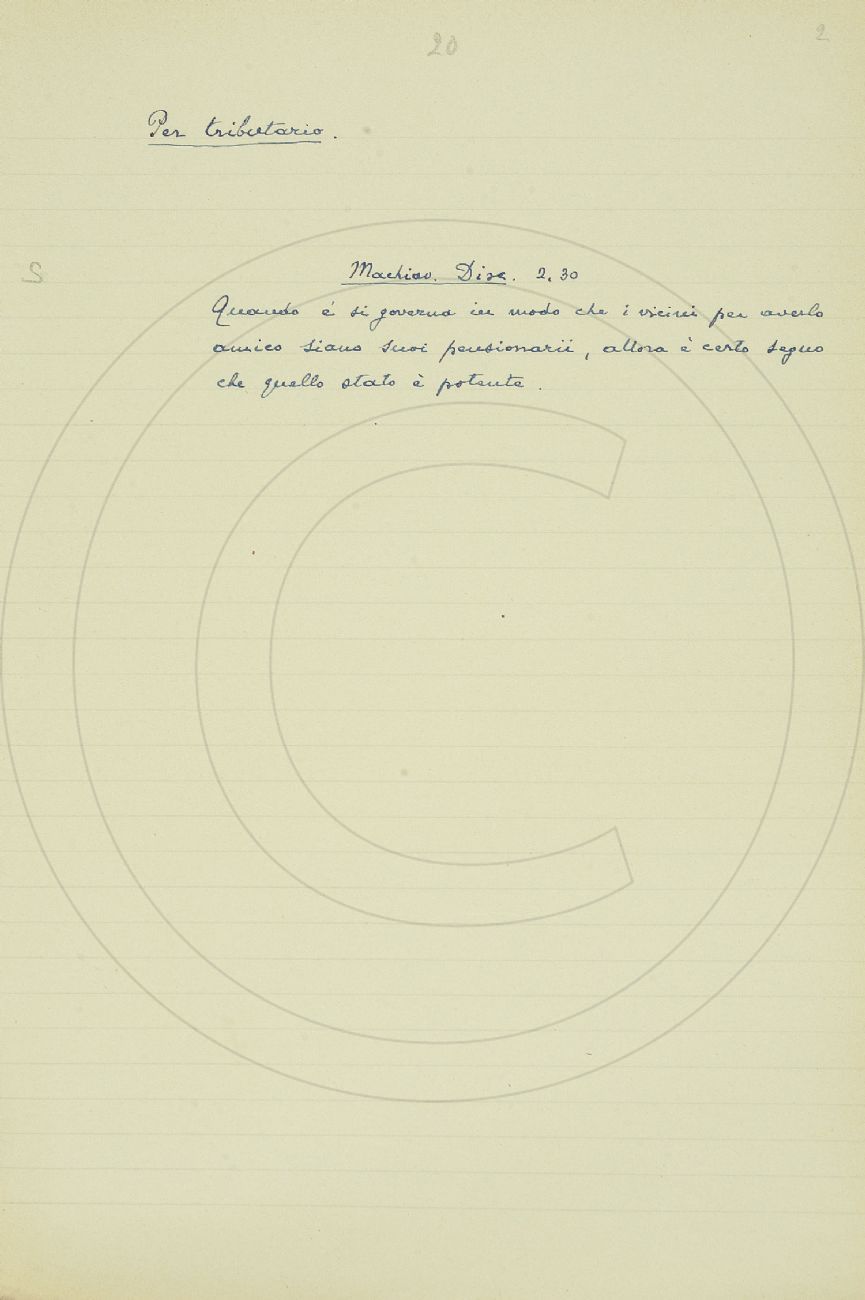 20
2
Per tributario.
S
Machiav. Disc. 2.30
Quando e' si governa in modo che i vicini per averlo
amico siano suoi pensionarii, allora è certo segno
che quello stato è potente.